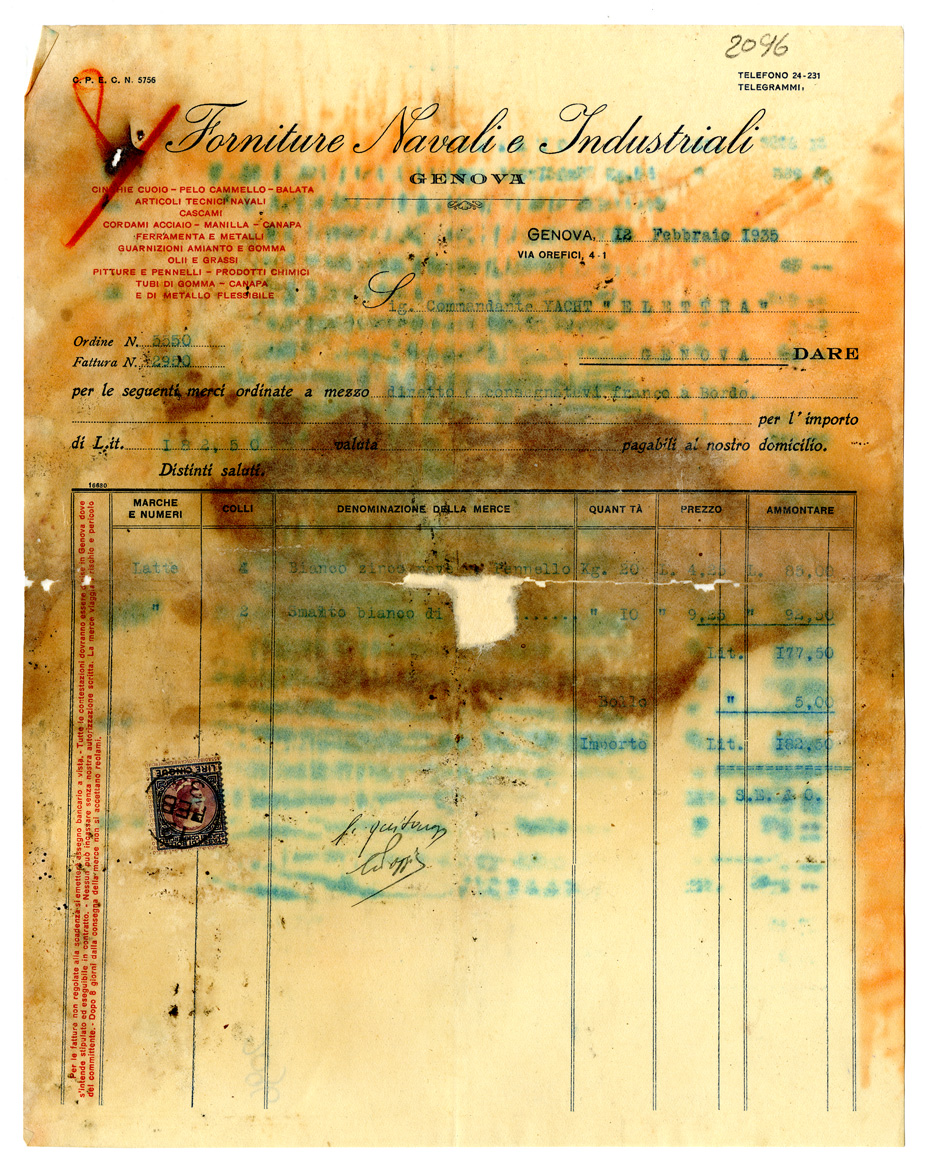 2096
C. P. E. C. N. 5756
TELEFONO 24-231
TELEGRAMMI:
Forniture Navali e Industriali
GENOVA
CINGHIE CUOIO – PELO CAMMELLO – BALATA
ARTICOLI TECNICI NAVALI
CASCAMI
CORDAMI ACCIAIO – MANILLA – CANAPA
FERRAMENTA E METALLI
GUARNIZIONI AMIANTO E GOMMA
OLII E GRASSI
PITTURE E PENNELLI – PRODOTTI CHIMICI
TUBI DI GOMMA – CANAPA
E DI METALLO FLESSIBILE
GENOVA, 12 Febbraio 1935
VIA OREFICI, 4-1
Sig. Commandante YACHT "ELETTRA"
Ordine N. 3350
Fattura N. 2980
GENOVA DARE
per le seguenti merci ordinate a mezzo diretto e consegnatevi franco a Bordo.
per l'importo
di L.it. 182,50 valuta pagabili al nostro domicilio.
Distinti saluti.
16680
MARCHE E NUMERI COLLI DENOMINAZIONE DELLA MERCE QUANTTÀ PREZZO AMMONTARE
Latta 4 Bianco zinco Pennello Kg. 20 L. 4,25 L. 85,00
" 2 Smalto bianco di ...... " 10 " 9,25 " 92,50
Lit. 177,50
Bollo " 5,00
Importo Lit. 182,50
S.E. & O.
LIRE CINQUE
FEB
p. quitanza
Per le fatture non regolate alla scadenza si emetterà assegno bancario a vista. - Tutte le contestazioni dovranno essere decise in Genova dove
s'intende stipulato ed eseguibile in contratto. - Nessun può incassare senza nostra autorizzazione scritta. La merce viaggia a rischio e pericolo
del committente. - Dopo 8 giorni dalla consegna della merce non si accettano reclami.